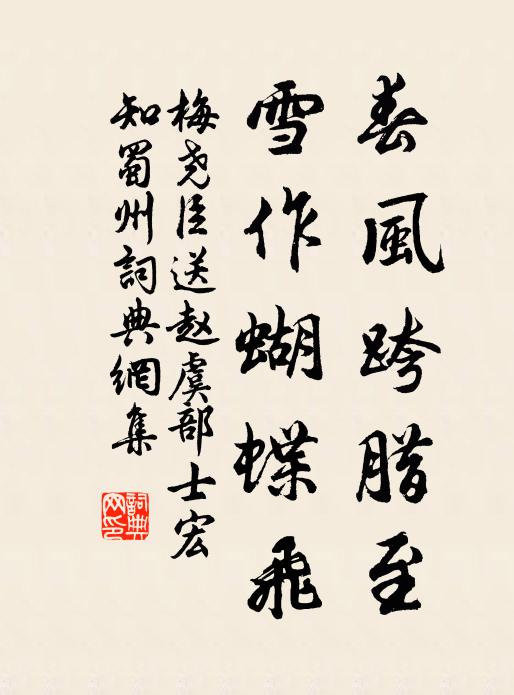 春風跨腊至
雪作蝴蝶飛
梅尧臣送赵虞部士宏
知蜀州詞典網集
詞典
网印